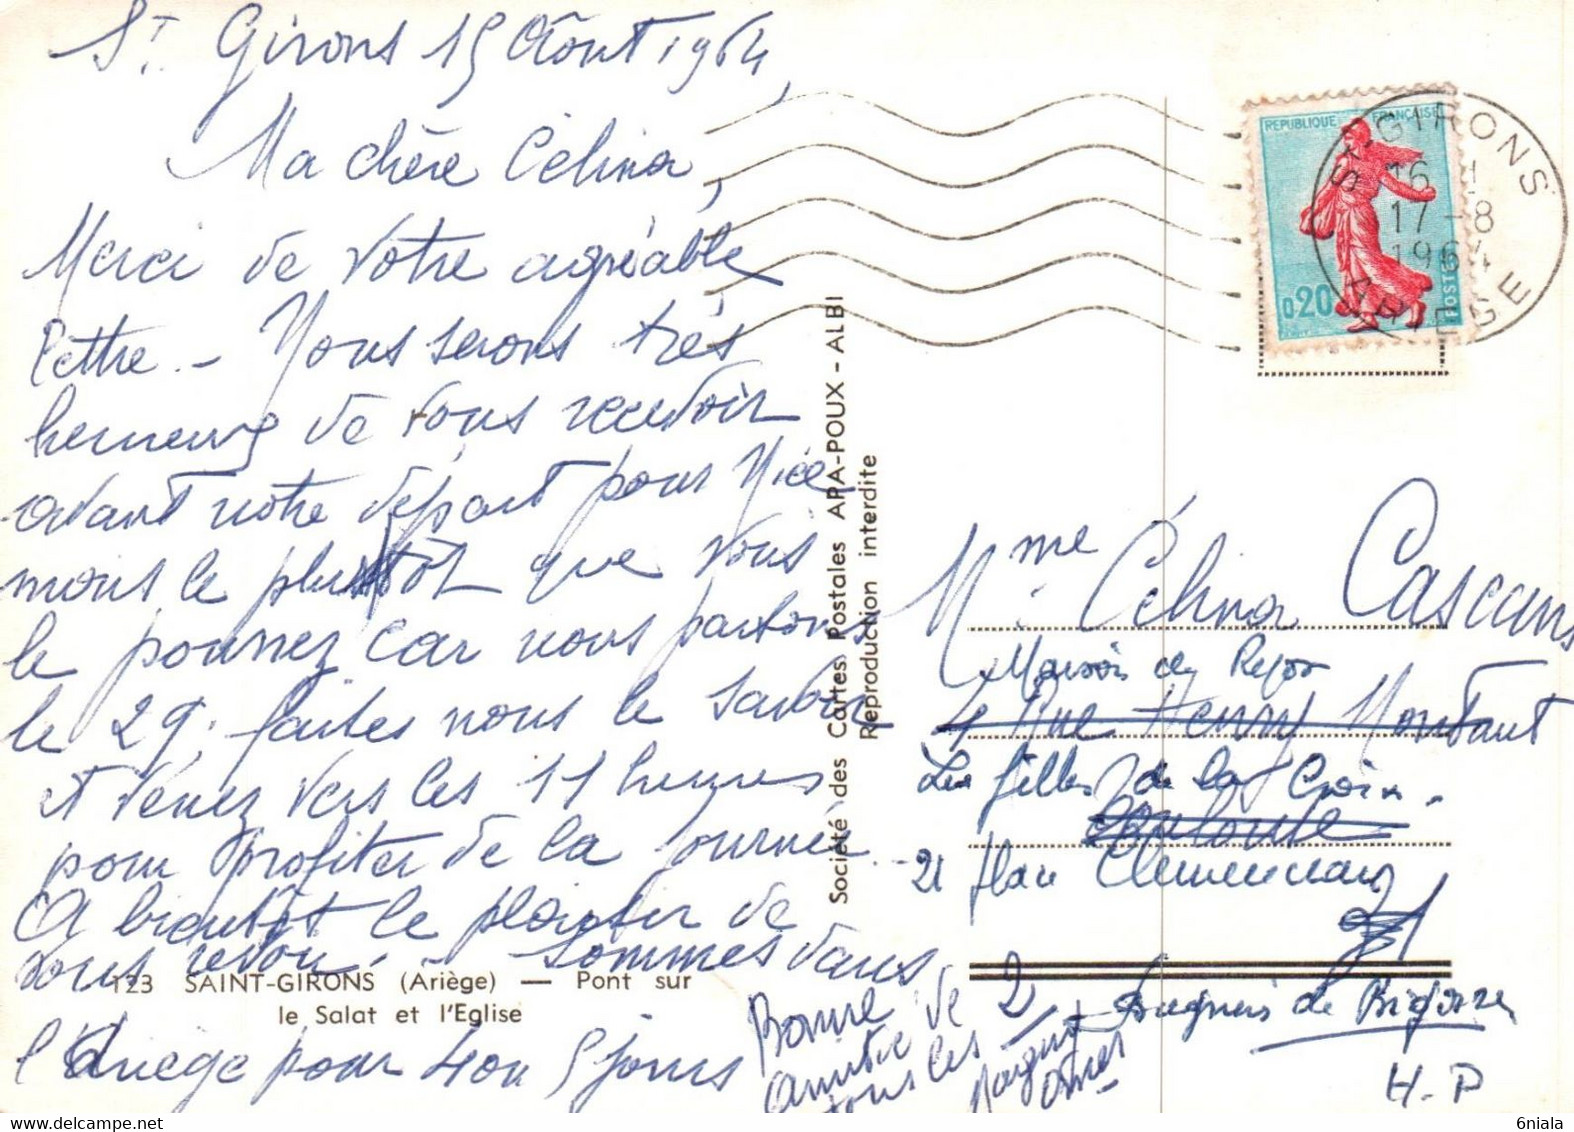 St Girons 15 Août 1964,
Ma chère Célina,
Merci de votre agréable
lettre. - Nous serons très
heureux de vous recevoir
avant notre départ pour Nice
mais le plus tôt que vous
le pourrez car nous partons
le 29. faites nous le savoir
et venez vers les 11 heures
pour profiter de la journée.
A bientôt le plaisir de
vous revoir. - sommes dans
l'Ariège pour 4 ou 5 jours
Bonne
amitié de
tous les 2
123 SAINT-GIRONS (Ariège) — Pont sur
le Salat et l'Eglise
Société des Cartes Postales APA-POUX - ALBI
Reproduction interdite
REPUBLIQUE FRANÇAISE
0,20
POSTES
ST GIRONS
16 H
17 - 8
1964
ARIEGE
Mme Célina Cascans
Maison de Repos
4 Rue Henry Montaut
Les filles de la Croix
Toulouse
21 place Clemenceau
Bagnères de Bigorre
H. P
6niala